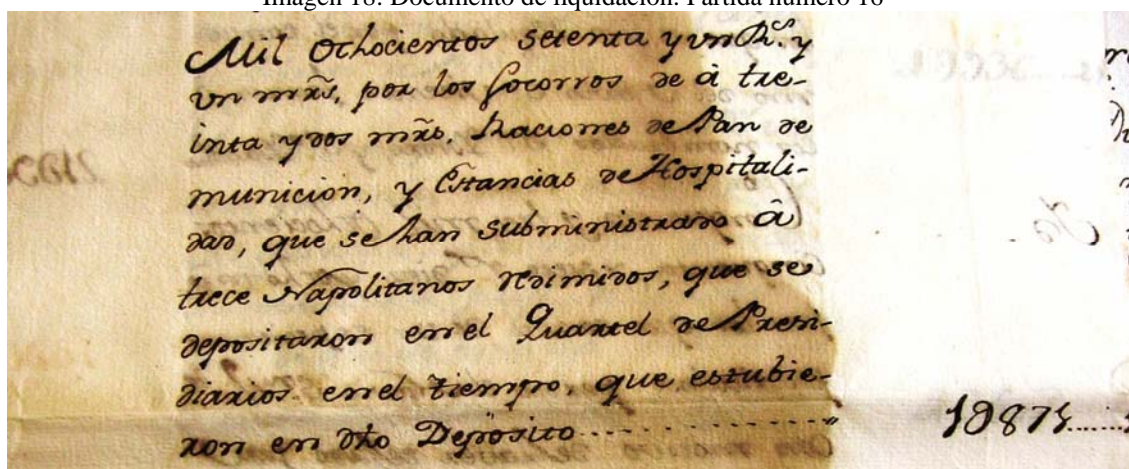 Imagen 18. Documento de liquidación. Partida número 18
Mil ochocientos setenta y un Rs. y
un mrs. por los socorros de à tre-
inta y dos mrs. Raciones de Pan de
munición, y Estancias de Hospitali-
dad, que se han subministrado â
trece Napolitanos redimidos, que se
depositaron en el Quartel de Presi-
diarios en el tiempo, que estubie-
ron en dho Deposito